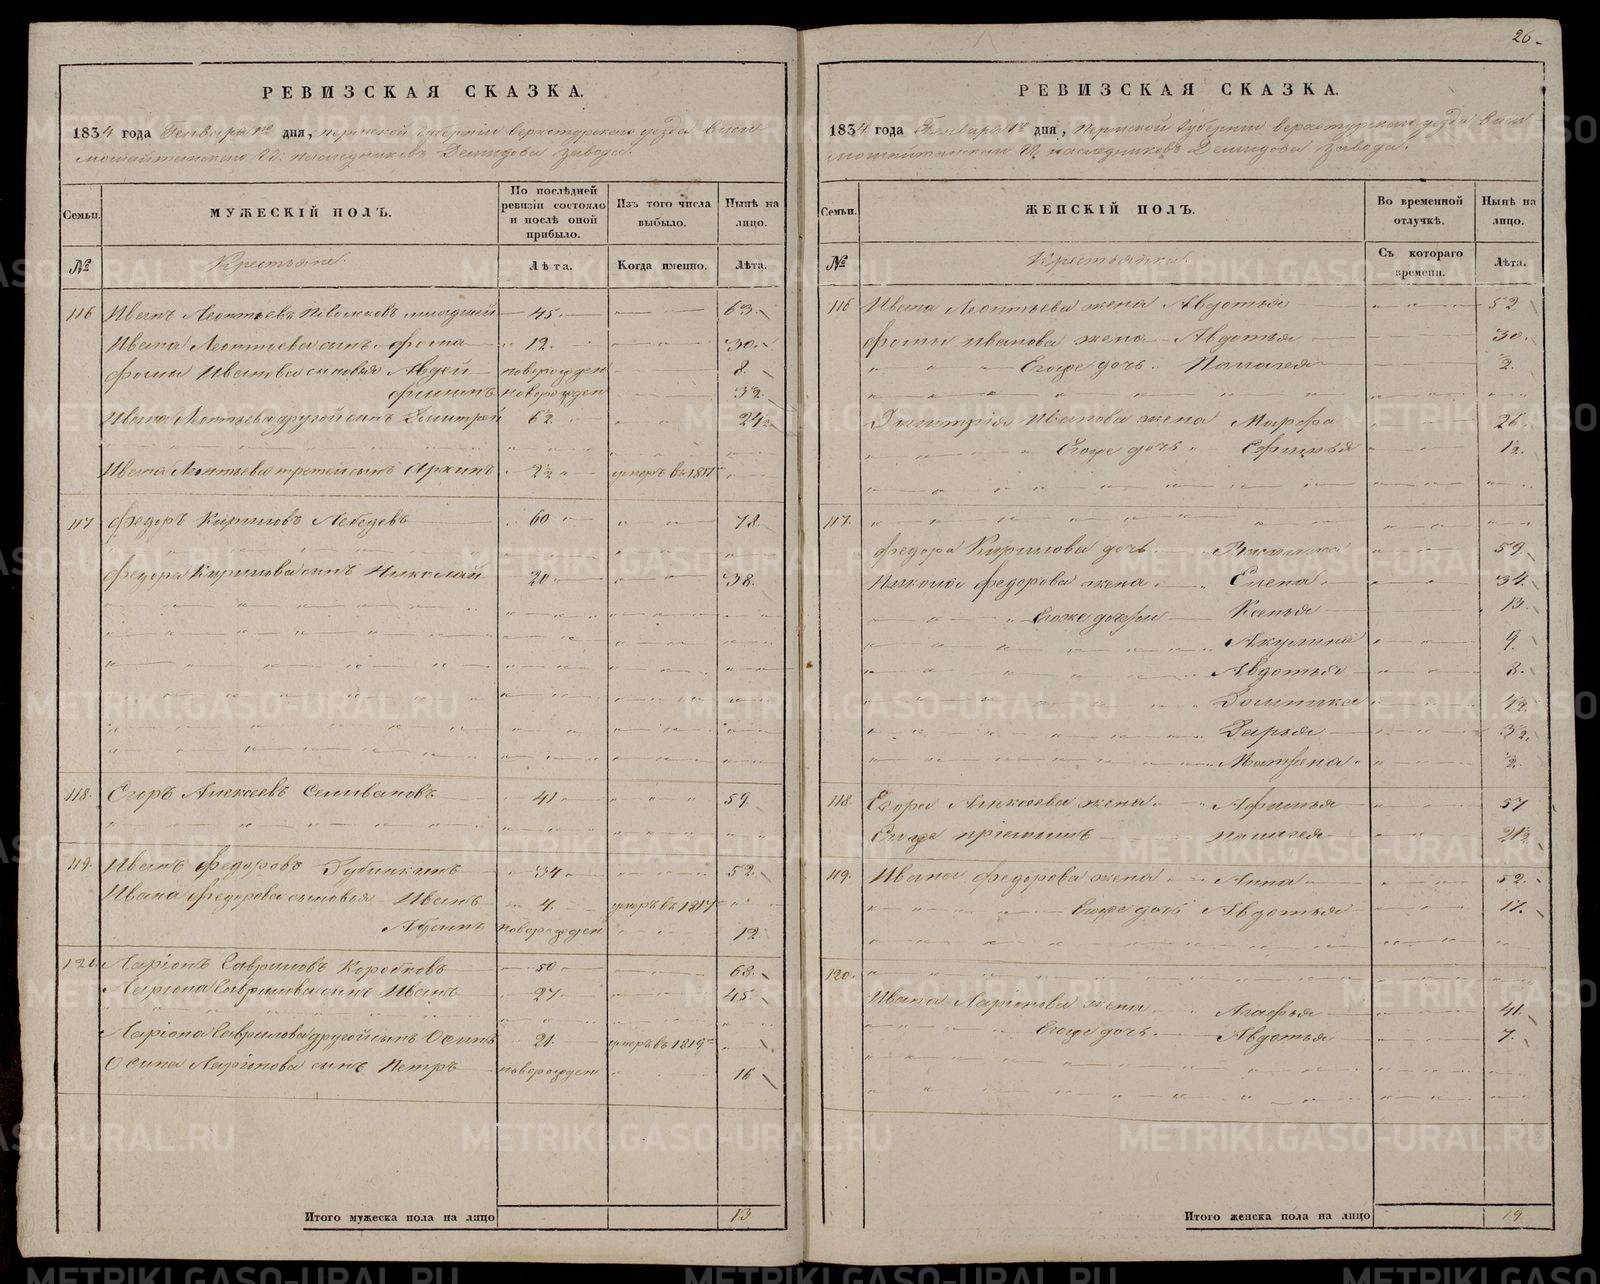 26.
РЕВИЗСКАЯ СКАЗКА.
1834 года Генваря 1го дня, Пермской Губернiи верхотурскаго уезда виси
мошайтанскаго Гг. наследниковъ Демидова завода.
Семьи.
МУЖЕСКIЙ ПОЛЪ.
По послѣдней ревизiи состояло и послѣ оной прибыло.
Изъ того числа выбыло.
Нынѣ на лицо.
№
Крестьяне.
Лѣта.
Когда именно.
Лѣта.
116 Иванъ Леонтьевъ младшей 45. 63.
Ивана Леонтьева сынъ фома 12. 30.
фомы Иванова сыновья Авдей новорожден 8.
филипъ новорожден 3½
Ивана Леонтьева другой сынъ Дмитрей 6½ 24½
Ивана Леонтьева третей сынъ Архипъ 2½ умеръ в
117 федоръ Кириловъ Лебедевъ 60 78.
федора Кирилова сынъ Николай 20. 38.
118. Егоръ Алексеевъ Селивановъ 41 59.
119. Иванъ федоровъ Губинкинъ 34 52.
Ивана федорова сыновья Иванъ 4. умеръ в 1817
новорожден 12
120. Ларiонъ Гавриловъ Коробковъ 50 68.
Ларiона Гаврилова сынъ Иванъ 27. 45.
Ларiона Гаврилова другой сынъ Осипъ 21. умеръ в 1819
Осипа Ларiонова сынъ Петръ новорожден 16
Итого мужеска пола на лицо 13
РЕВИЗСКАЯ СКАЗКА.
1834 года Генваря 1го дня, Пермской Губернiи верхотурскаго уезда виси
мошайтанскаго Гг. наследниковъ Демидова завода.
Семьи.
ЖЕНСКIЙ ПОЛЪ.
Во временной отлучкѣ.
Нынѣ на лицо.
№
Крестьянки.
Съ котораго времени.
Лѣта.
116 Ивана Леонтьева жена Авдотья 52
фомы Иванова жена Авдотья 30.
Егоже дочь Палагея ½
Дмитрiя Иванова жена Марфа 26.
Егоже дочь Ефимья 1½
117.
федора Кирилова дочь 59.
Николая федорова жена Елена 34.
Егоже дочери Ксенья 13.
Акулина 9.
Авдотья 8.
Домника 4½
Дарья 3½
Матрена ½
118. Егора Алексеева жена Афимья 57
Егоже прiемышъ Палагея 21½
119. Ивана федорова жена Анна 52.
Егоже дочь Авдотья 17.
120.
Ивана Ларiонова жена Агафья 41.
Егоже дочь Авдотья 7.
Итого женска пола на лицо 19
METRIKI.GASO-URAL.RU